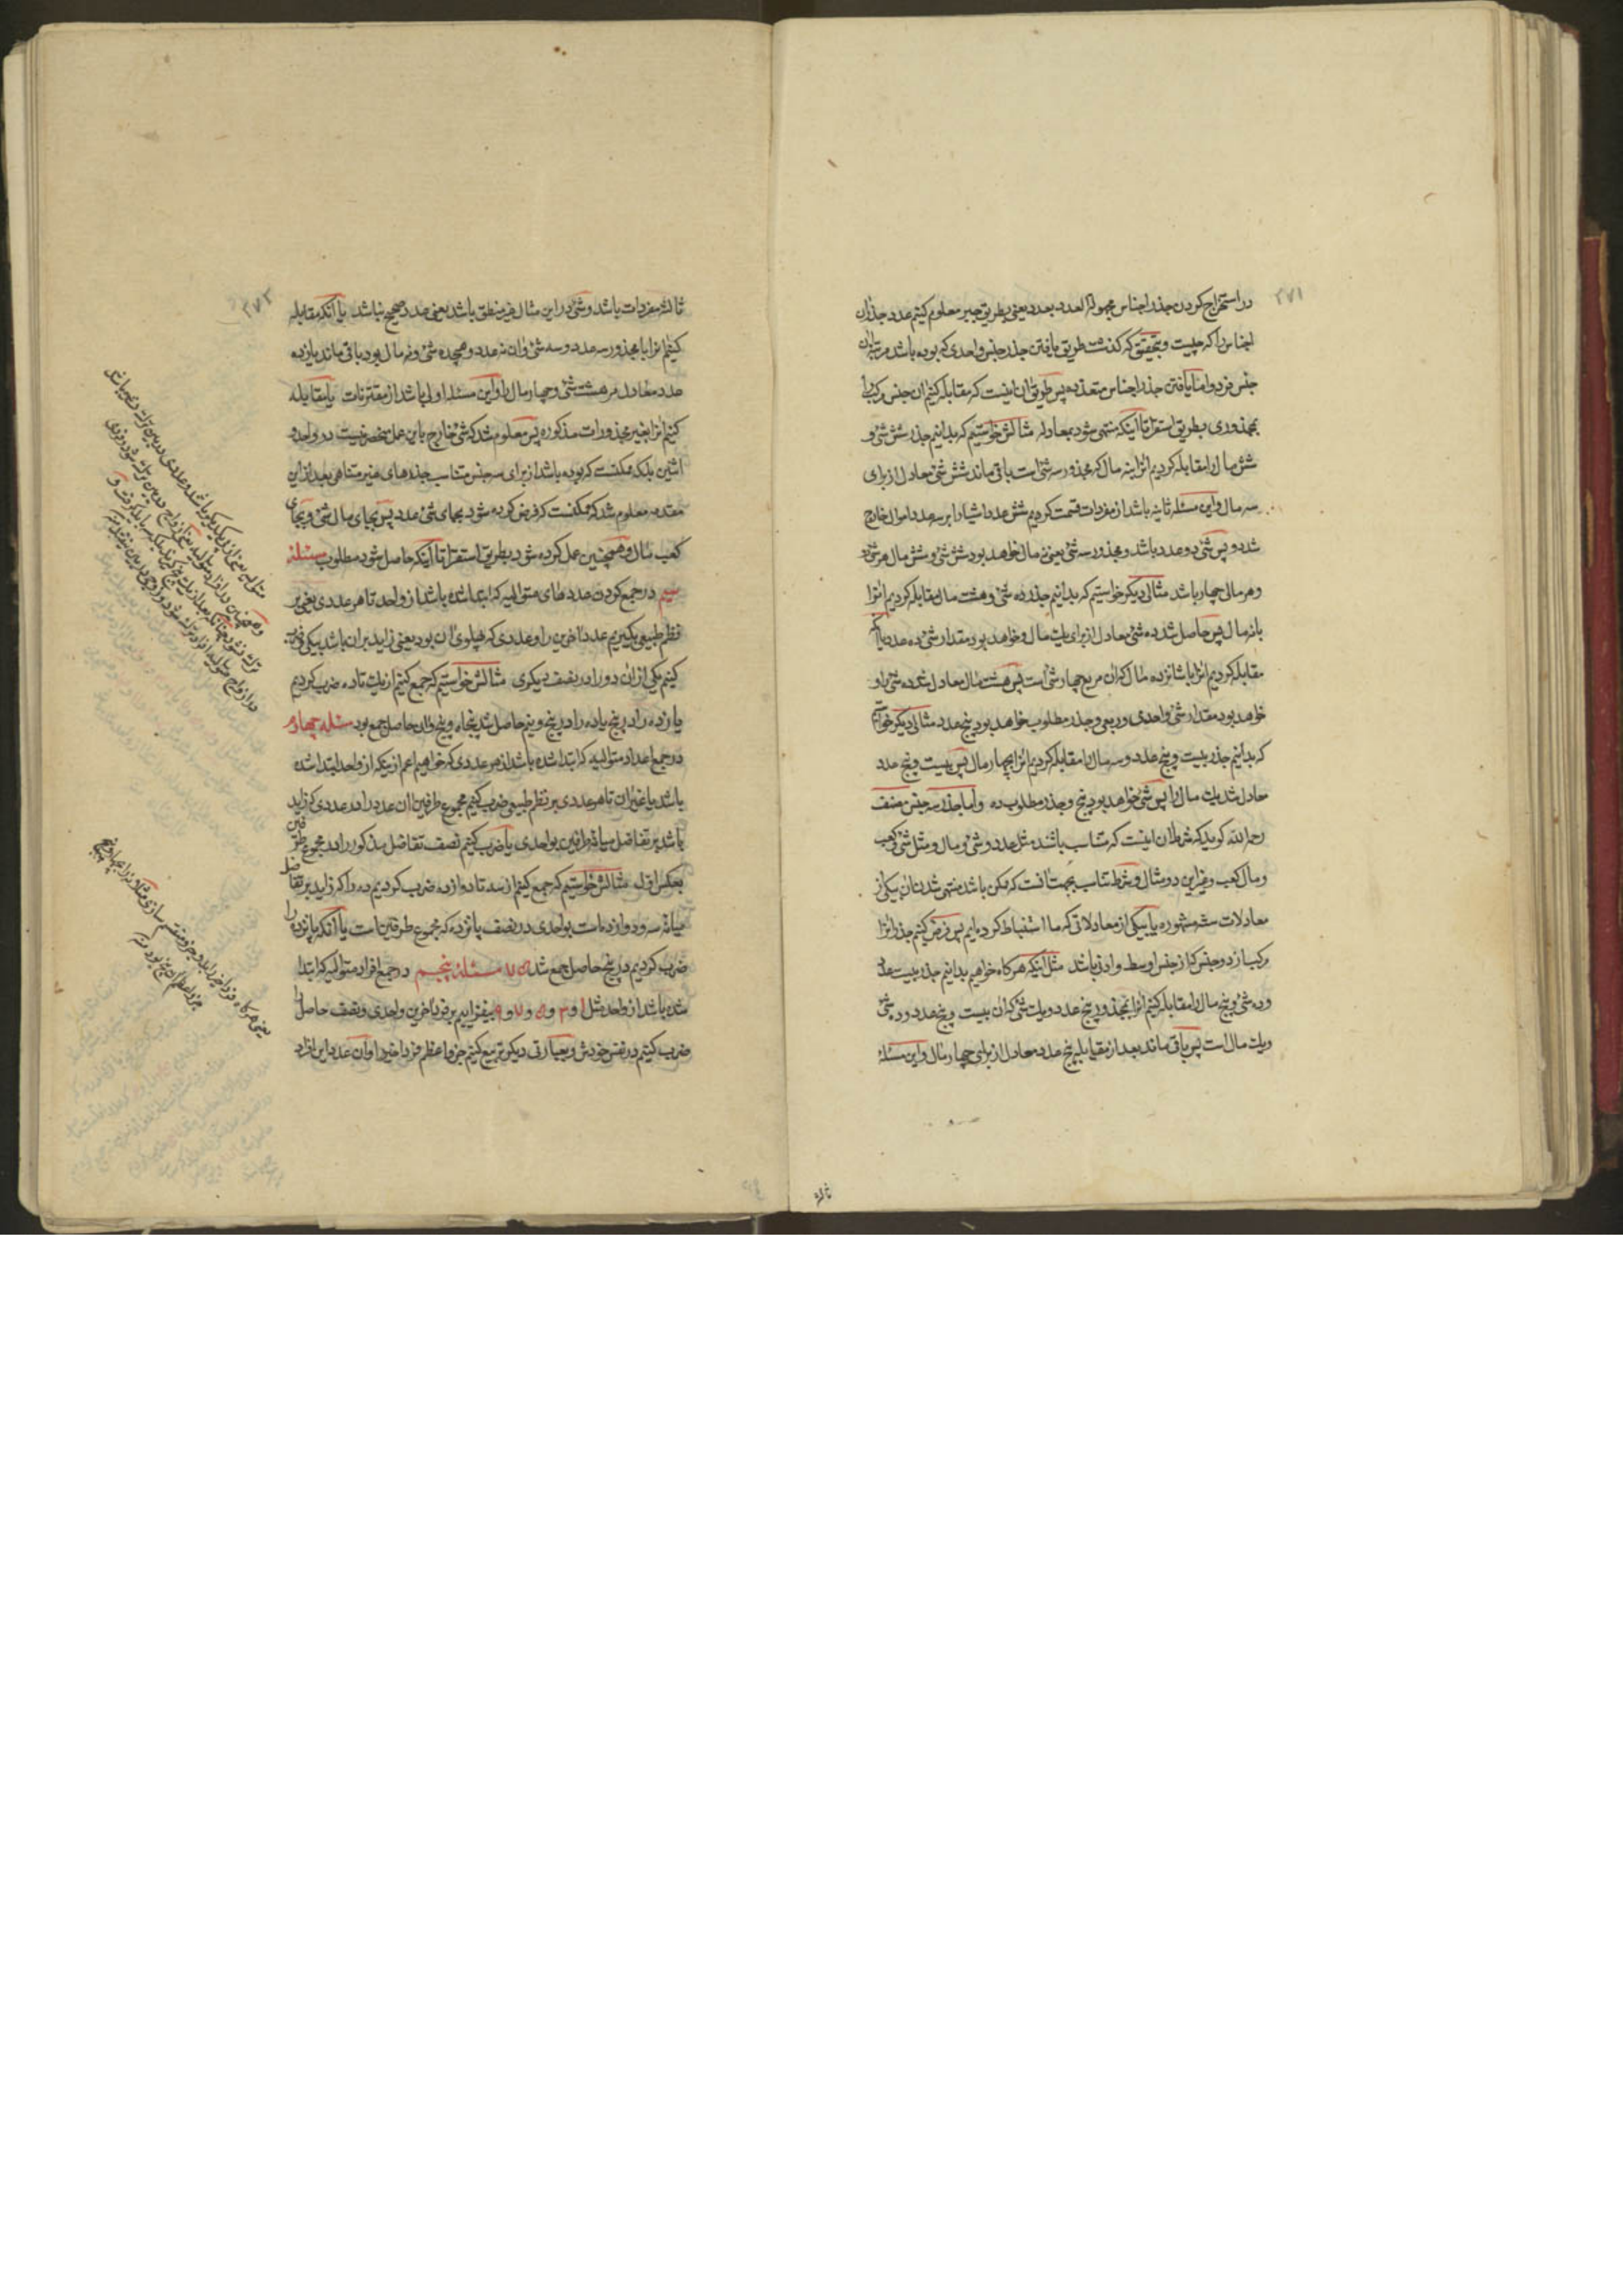 ۲۷۱
در استخراج کردن جذر اجناس مجهولة العدد بعدد یعنی بطریق جبر معلوم کنیم عدد جذر ان
اجناس را که چیست و بتحقیق که گذشت طریق یافتن جذر جنس واحدی که بوده باشد مرتبه ان
جنس فرد و اما یافتن جذر اجناس متعدده پس طریق ان اینست که مقابله کنیم ان جنس مرکب را
بمجذوری بطریق استقرا تا اینکه منتهی شود بمعادله مثالش خواستیم که بدانیم جذر شش شئ و
شش مال را مقابله کردیم انرا بنه مال که مجذور سه شئ است باقی ماند شش شئ معادل از برای
سه مال و این مسئله ثانیه باشد از مفردات قسمت کردیم شش عدد اشیا را بر سه عدد اموال خارج
شد دو پس شئ دو عدد باشد و مجذور سه شئ یعنی نه مال خواهد بود شش شئ و شش مال هر شئ دو
و هر مالی چهار باشد مثالی دیگر خواستیم که بدانیم جذر ده شئ و هشت مال مقابله کردیم انرا
بانه مال پس حاصل شد ده شئ معادل از برای یک مال و خواهد بود مقدار شئ ده عدد یا انکه
مقابله کردیم انرا با شانزده مال که ان مربع چهار شئ است پس هشت مال معادل شد ده شئ را و
خواهد بود مقدار شئ واحدی و ربعی و جذر مطلوب خواهد بود پنج عدد مثالی دیگر خواستیم
که بدانیم جذر بیست و پنج عدد و سه مال را مقابله کردیم انرا بچهار مال پس بیست و پنج عدد
معادل شد یک مال را پس شئ خواهد بود پنج و جذر مطلوب ده و اما جذر سه جنس مصنف
رحمه الله گوید که شرط ان اینست که متناسب باشند مثل عدد و شئ و مال و مثل شئ و کعب
و مال کعب و غیر این دو مثال و شرط تناسب بجهت انست که ممکن باشد منتهی شدنشان بیکی از
معادلات سته مشهوره یا بیکی از معادلاتی که ما استنباط کرده‌ایم پس فرض کنیم جذر انرا
مرکب از دو جنس که از جنس اوسط و ادنی باشد مثل اینکه هرگاه خواهیم بدانیم جذر بیست عدد
و ده شئ و پنج مال را مقابله کنیم انرا بمجذور پنج عدد و یک شئ که ان بیست و پنج عدد و ده شئ
و یک مال است پس باقی ماند بعد از مقابله پنج عدد معادل از برای چهار مال و این مسئله
ثالثه
۲۷۲
ثالثه مفردات باشد و شئ در این مثال غیر منطق باشد یعنی عدد صحیح نباشد یا انکه مقابله
کنیم انرا با مجذور سه عدد و سه شئ و ان نه عدد و هیجده شئ و نه مال بود باقی ماند یازده
عدد معادل مر هشت شئ و چهار مال را و این مسئله اولی باشد از مقترنات یا مقابله
کنیم انرا بغیر مجذورات مذکوره پس معلوم شد که شئ خارج باین عمل منحصر نیست در واحد و
اثنین بلکه ممکنست که بوده باشد از برای سه جنس متناسب جذرهای غیر متناهی بعد از این
مقدمه معلوم شد که ممکنست که فرض کرده شود بجای شئ عدد پس بجای مال شئ و بجای
کعب مال و همچنین عمل کرده شود بطریق استقرا تا اینکه حاصل شود مطلوب مسئله
سیم در جمع کردن عددهای متوالیه که ابتدا شده باشد از واحد تا هر عددی یعنی بر
نظم طبیعی بگیریم عدد اخرین را و عددی که پهلوی ان بود یعنی زاید بر ان باشد بیکی و ضرب
کنیم یکی از ان دو را در نصف دیگری مثالش خواستیم که جمع کنیم از یک تا ده ضرب کردیم
یازده را در پنج یا ده را در پنج و نیم حاصل شد پنجاه و پنج و ان حاصل جمع بود مسئله چهارم
در جمع اعداد متوالیه که ابتدا شده باشد از هر عددی که خواهیم اعم از اینکه از واحد ابتدا شده
باشد یا غیر ان تا هر عددی بر نظم طبیعی ضرب کنیم مجموع طرفین ان عدد را در عددی که زاید
باشد بر تفاضل میانه طرفین بواحدی یا ضرب کنیم نصف تفاضل مذکور را در مجموع طرفین
بعکس اول مثالش خواستیم که جمع کنیم از سه تا دوازده ضرب کردیم ده را که زاید بر تفاضل
میانه سه و دوازده است بواحدی در نصف پانزده که مجموع طرفین است یا انکه پانزده را
ضرب کردیم در پنج حاصل جمع شد ۷۵ مسئله پنجم در جمع افراد متوالیه که ابتدا
شده باشد از واحد مثل ۱ و ۳ و ۵ و ۷ و ۹ بیفزاییم بر فرد اخرین واحدی و نصف حاصل را
ضرب کنیم در نفس خودش و بعبارتی دیگر تربیع کنیم جزو اعظم فرد اخیر را و ان عدد این افراد